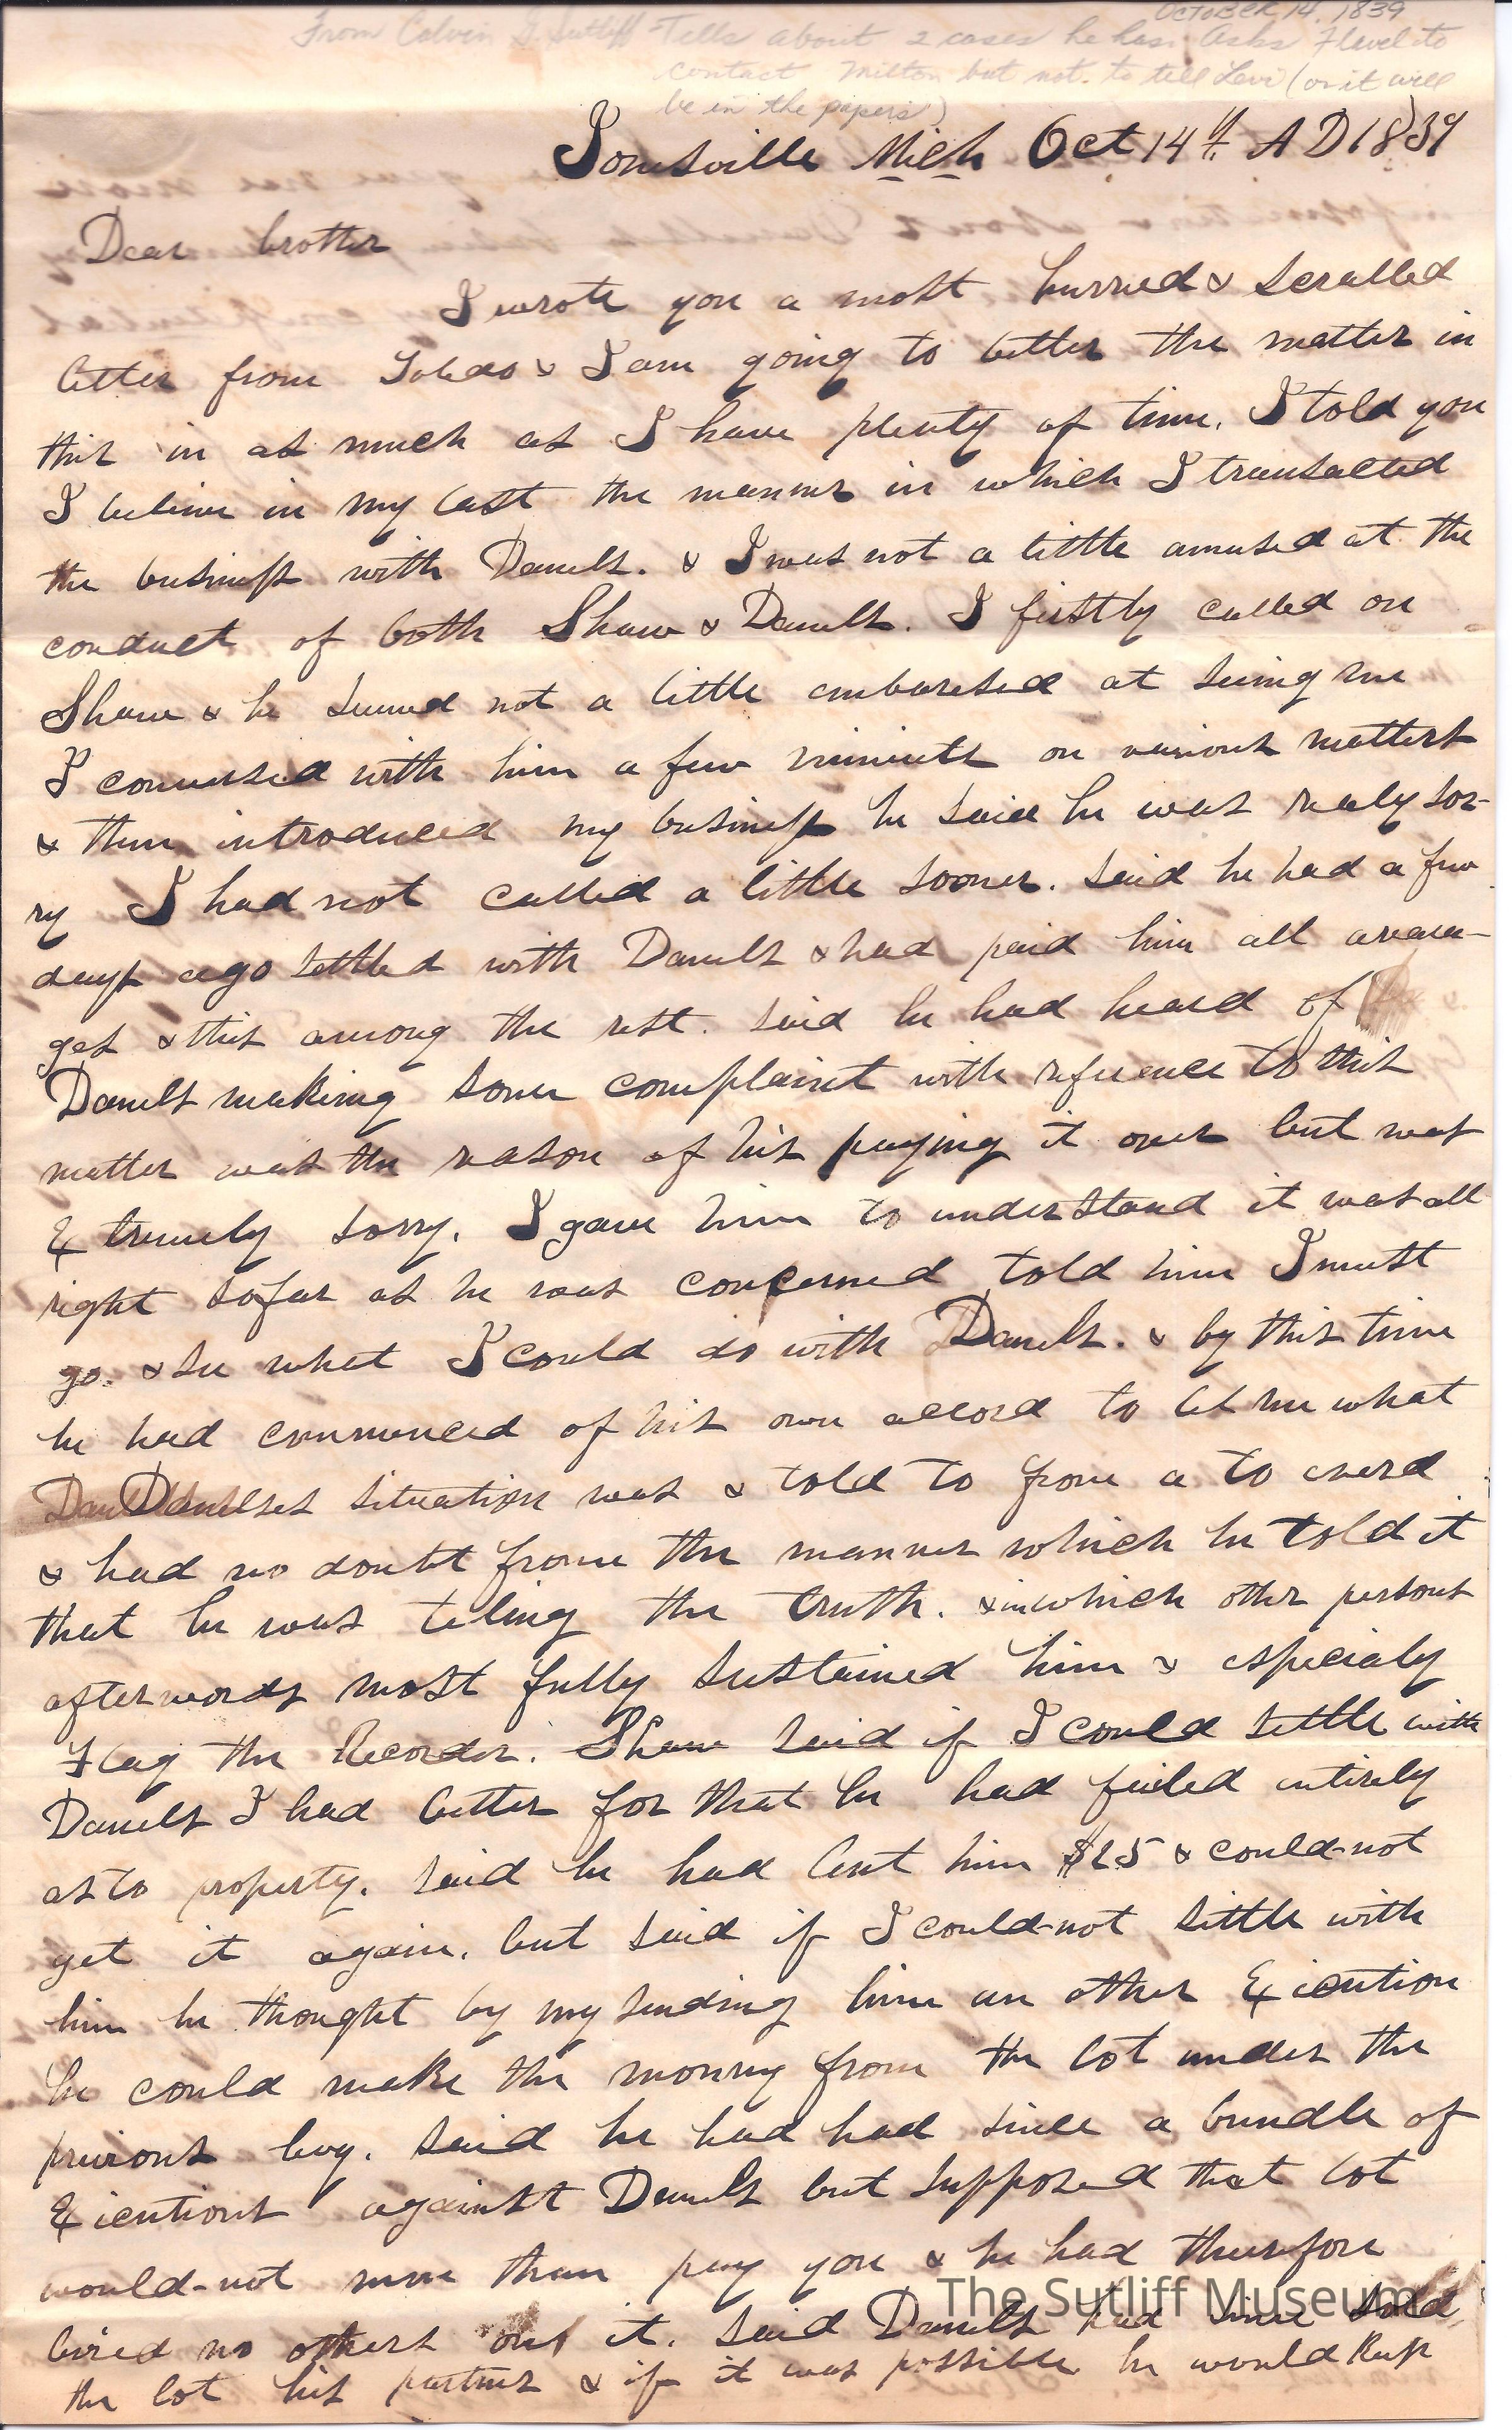 October 14, 1839
From Calvin G Sutliff - Tells about 2 cases he has. Asks Flavel to
contact Milton but not to tell Levi (or it will
be in the papers)
Jonesville Mich Oct 14th AD 1839
Dear brother
I wrote you a most hurried & scralled
letter from Toledo & I am going to better the matter in
this in as much as I have plenty of time. I told you
I believe in my last the manner in which I transacted
the business with Daniels. & I was not a little amused at the
conduct of both Shaw & Daniels. I firstly called on
Shaw & he seemed not a little embaresed at seeing me
I conversed with him a few minuets on various matters
& then introduced my business he said he was realy sor-
ry I had not called a little sooner. said he had a few
days ago settled with Daniels & had paid him all avara-
ges & this among the rest. said he had heard of
Daniels making some complaint with refference to this
matter was the reason of his paying it over but was
Extremely sorry. I gave him to understand it was all
right so far as he was concerned told him I must
go. & see what I could do with Daniels. & by this time
he had commenced of his own accord to let me what
Danielses situation was & told to from a to averd
& had no doubt from the manner which he told it
that he was teling the truth. & in which other persons
afterwords most fully sustained him & especialy
Flag the Recorder. Shaw said if I could settle with
Daniels I had better for that he had failed entirely
as to property. said he had lent him $25 & could-not
get it again. but said if I could-not settle with
him he thought by my sending him an other Execution
he could make the money from the lot under the
previous levy. said he had had since a bundle of
Executions against Daniels but supposed that lot
would-not more than pay you & he had therefore
levied no others on it. said Daniels had since sold
the lot his partner & if it was possible he would keep
The Sutliff Museum